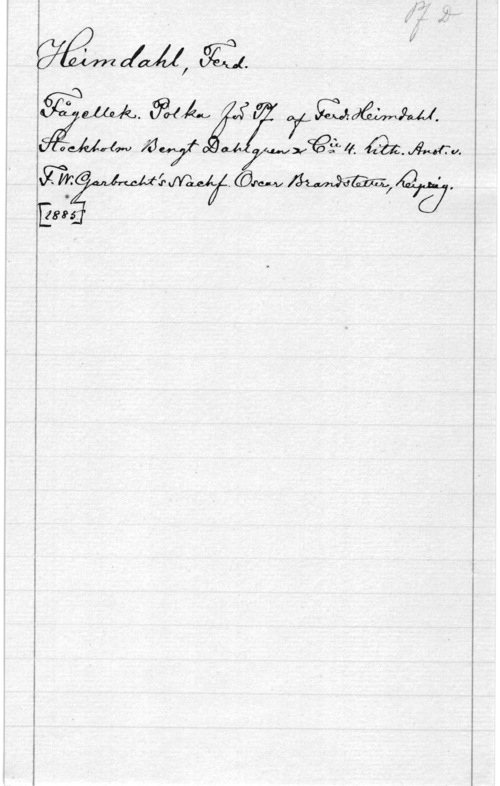 Pf D
Heimdahl, Ferd.
Fågellek. Polka för Pf. af Ferd. Heimdahl.
Stockholm Bengt Dahlgren & C:ie 4. Lith. Anst. v.
F. W. Garbrecht's Nachf. Oscar Brandstetter, Leipzig.
[1885]